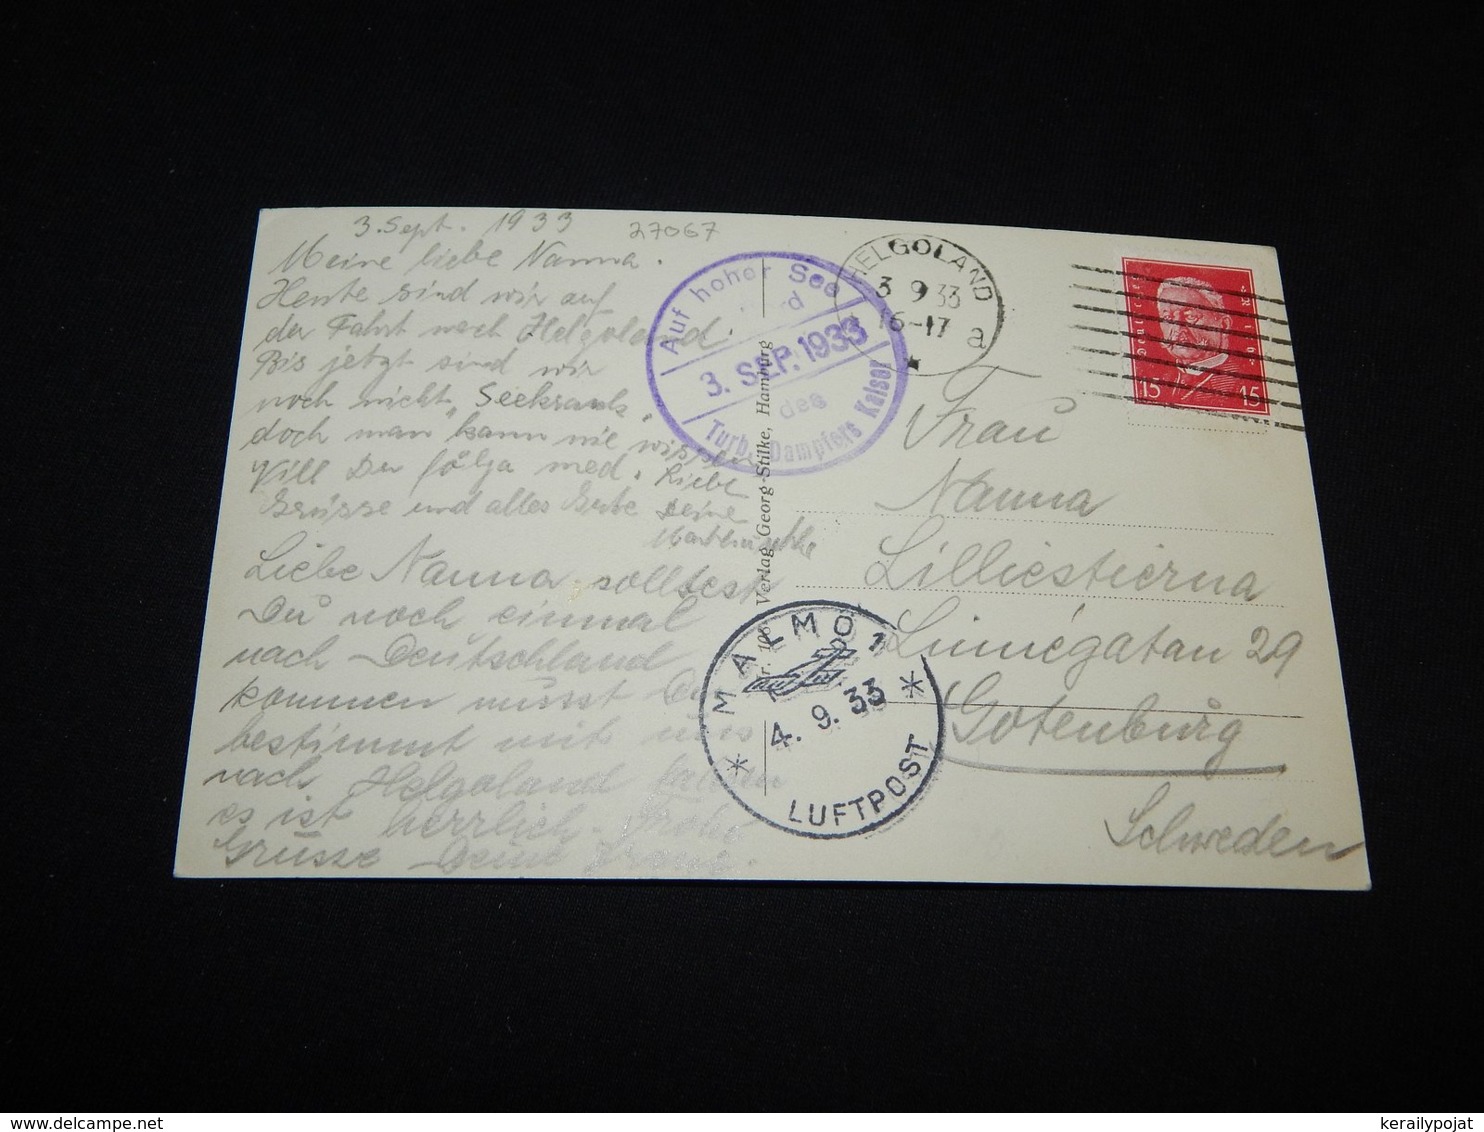 3. Sept. 1933
27067
Meine liebe Nanna.
Heute sind wir auf
der Fahrt nach Helgoland.
Bis jetzt sind wir
noch nicht "Seekrank"
doch man kann nie wissen
Vill Du följa med. Liebe
Grüsse und alles Gute Deine
Liebe Nanna solltest
Du noch einmal
nach Deutschland
kommen musst Du
bestimmt mit uns
nach Helgoland
es ist herrlich. Frohe
Grüsse Deine
Auf hoher See
Bord
3. SEP. 1933
des
Turb. Dampfers Kaiser
Verlag Georg Stilke, Hamburg
HELGOLAND
3 9 33
16-17
a
15 15
Frau
Nanna
Lilliestierna
Linnégatan 29
Gotenburg
Schweden
MALMÖ 1
4. 9. 33
LUFTPOST
kerailypojat